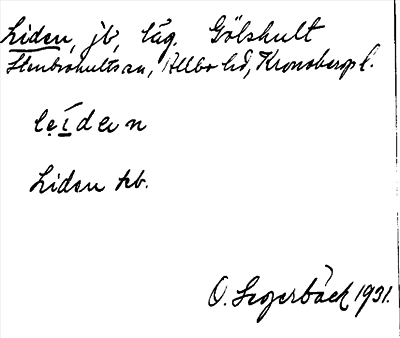 Liden, jb, läg. Gölshult
Stenbrohults sn, Allbo hd, Kronobergs l.
le̤í̱den
Liden hb.
O. Segerbäck 1931.